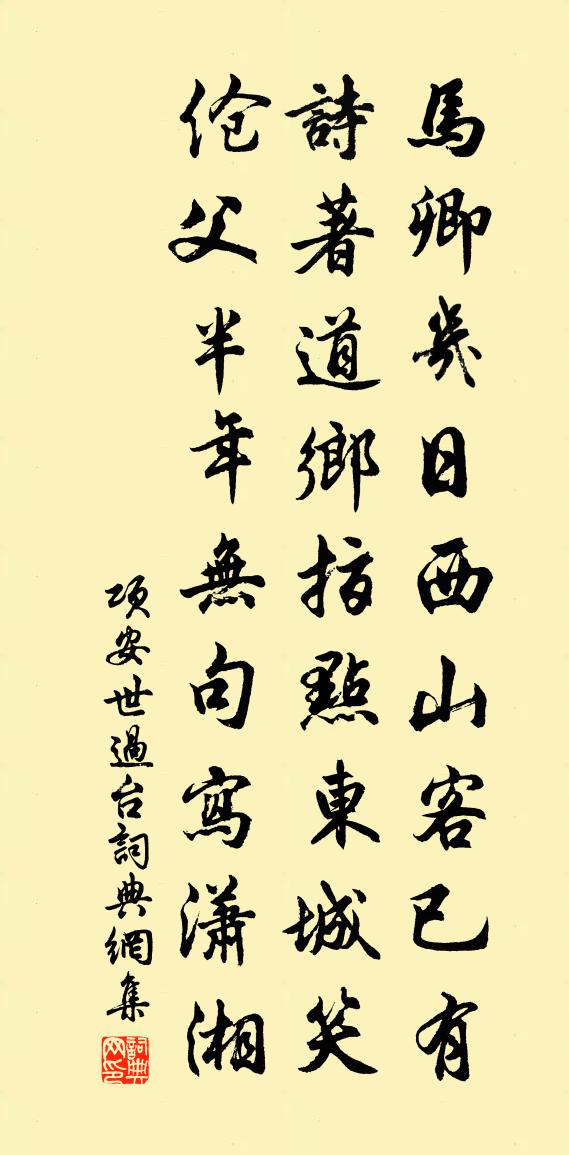 馬卿幾日西山客已有
詩著道鄉指點東城笑
傖父半年無句寫瀟湘
項安世過台詞典網集
詞典網印